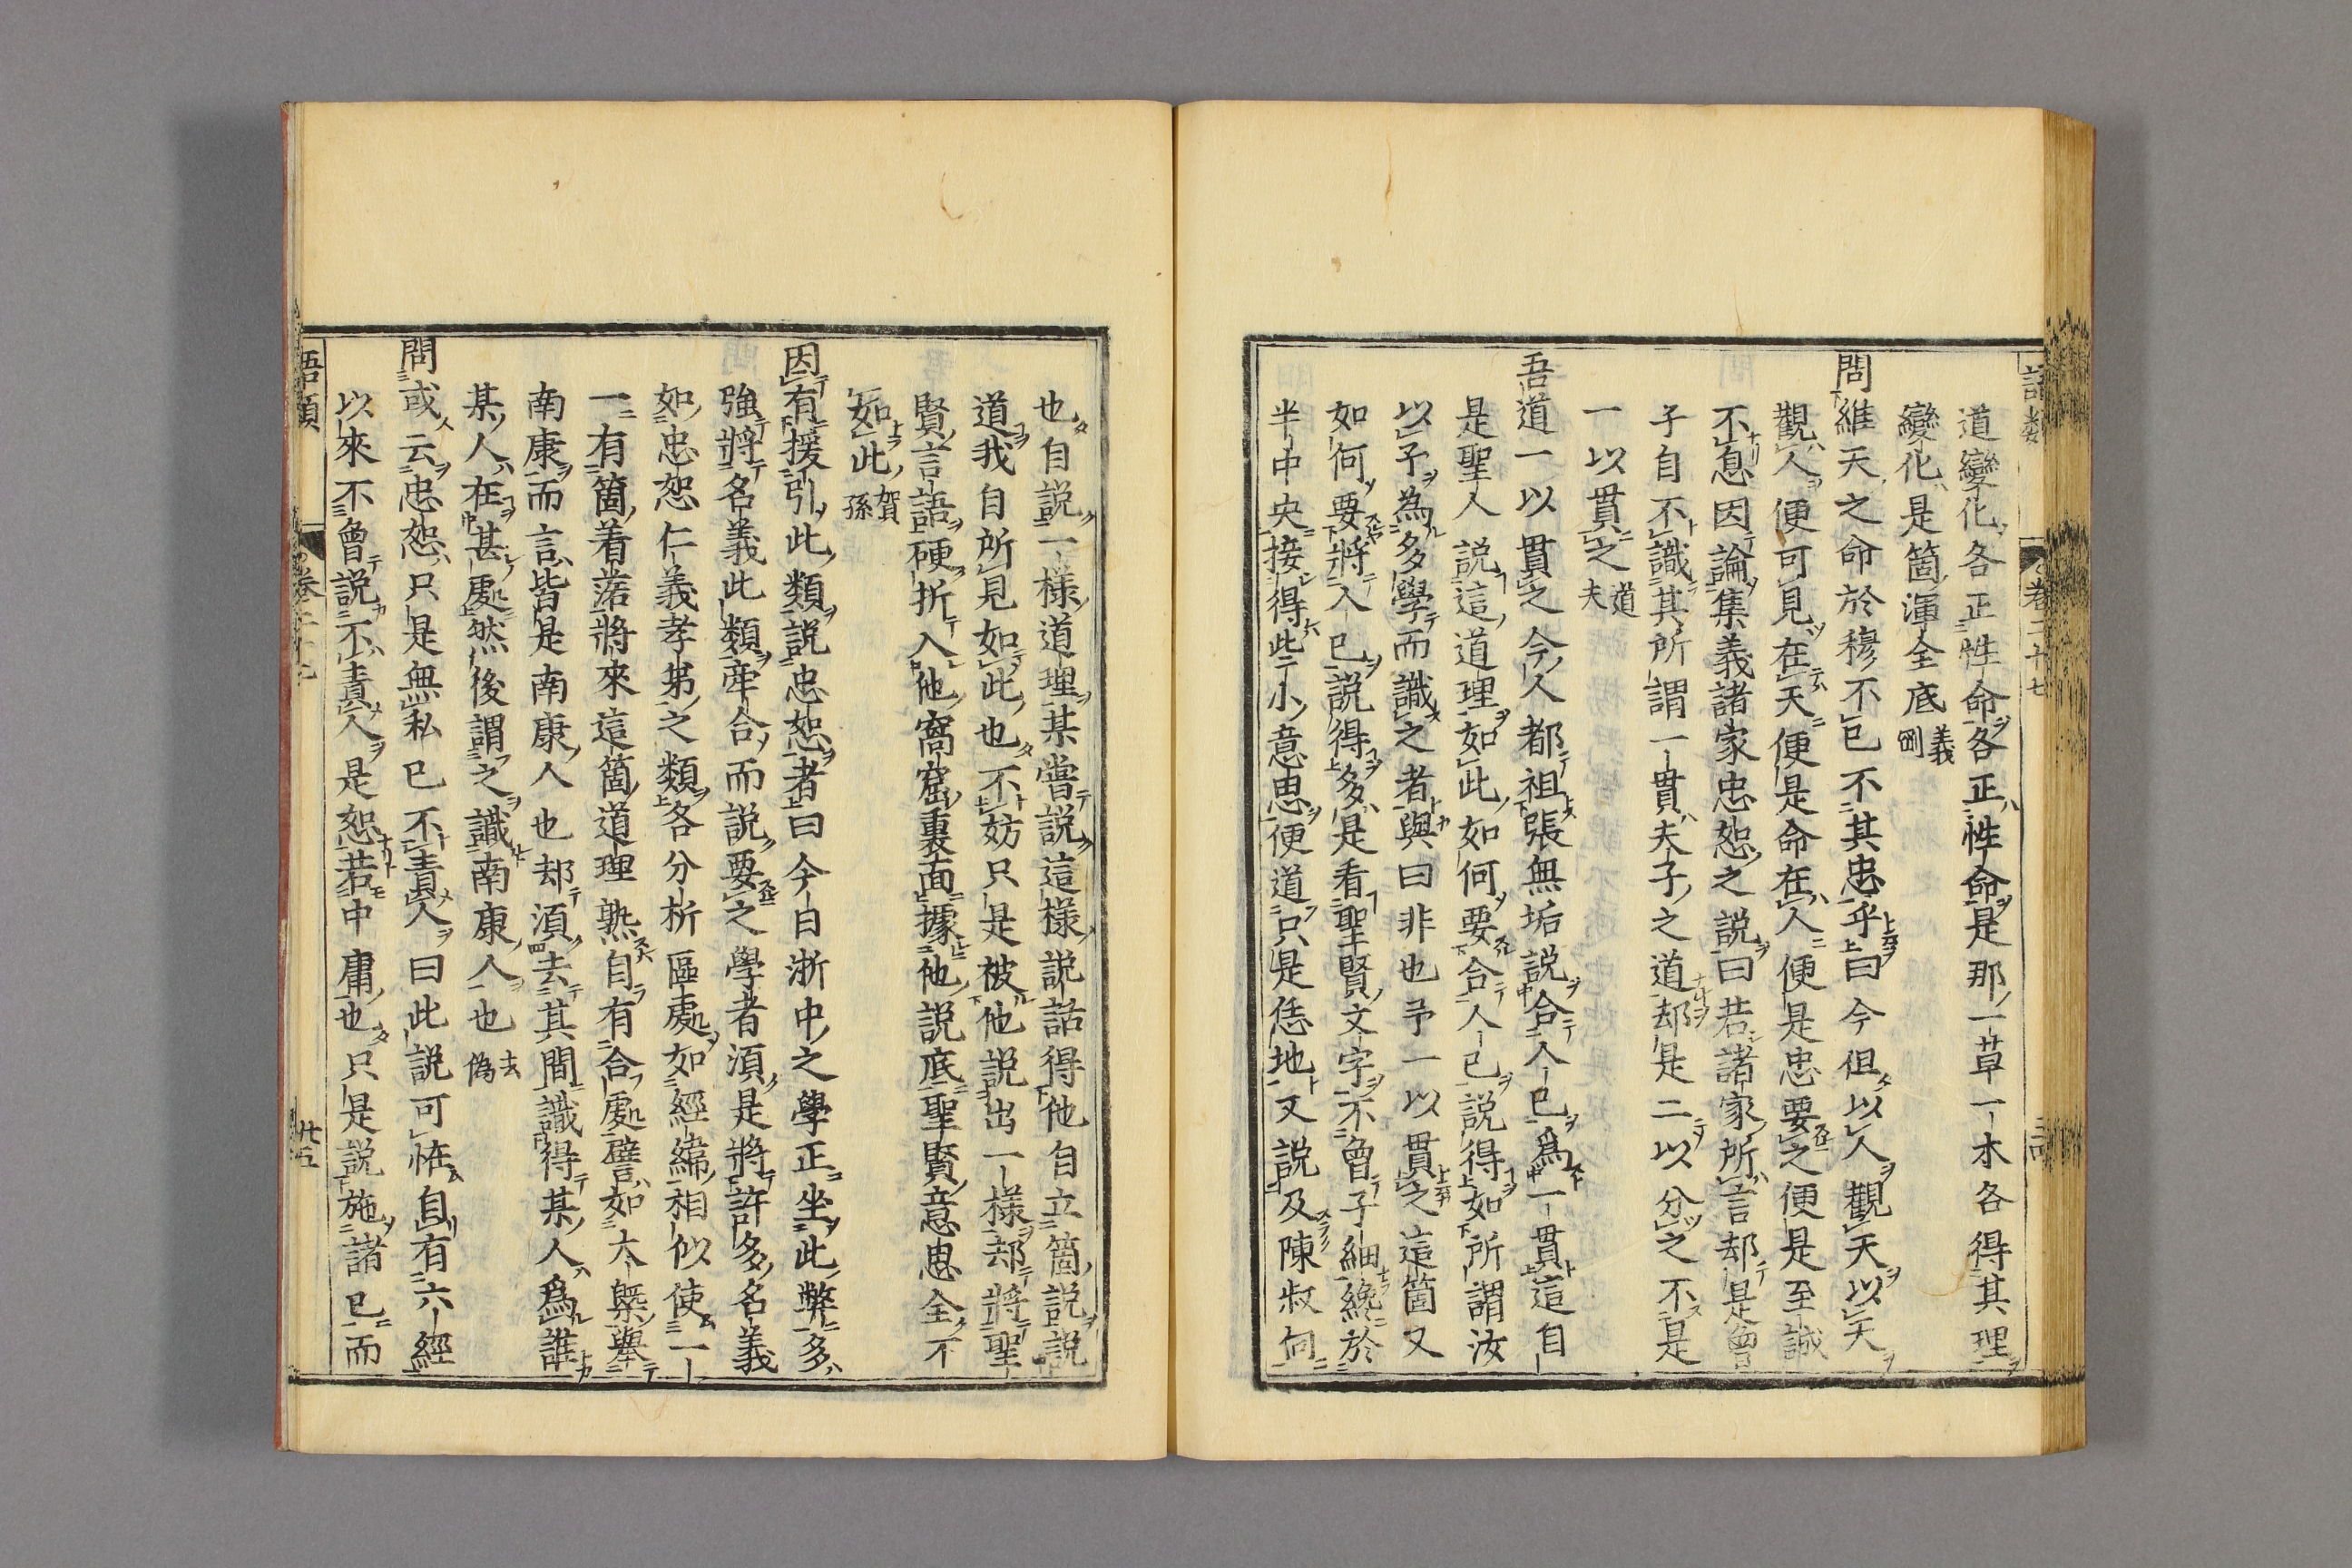 語類
卷二十七
道變化各正性命各正性命是那一草一木各得其理
變化是箇渾全底義剛
問維天之命於穆不已不其忠乎曰今但以人觀天以天
觀人便可見在天便是命在人便是忠要之便是至誠
不息因論集義諸家忠恕之説曰若諸家所言却是曾
子自不識其所謂一貫夫子之道却是二以分之不是
一以貫之道夫
吾道一以貫之今人都祖張無垢説合人己爲一貫這自
是聖人説這道理如此如何要合人己説得如所謂汝
以予為多學而識之者與曰非也予一以貫之這箇又
如何要將人己説得多是看聖賢文字不曾子細纔於
半中央接得些小意思便道只是恁地又説及陳叔向
也自説一樣道理某嘗説這樣説話得他自立箇説説
道我自所見如此也不妨只是被他説出一樣却將聖
賢言語硬折入他窩窟裏面據他説底聖賢意思全不
如此賀孫
因有援引此類説忠恕者曰今日浙中之學正坐此弊多
強將名義此類牽合而説要之學者須是將許多名義
如忠恕仁義孝弟之類各分析區處如經緯相似使一
一有箇着落將來這箇道理熟自有合處譬如大槩舉
南康而言皆是南康人也却須去其間識得某人爲誰
某人在甚處然後謂之識南康人也去偽
問或云忠恕只是無私己不責人曰此説可恠自有六經
以來不曾説不責人是恕若中庸也只是説施諸己而
語類
卷二十七
廿五